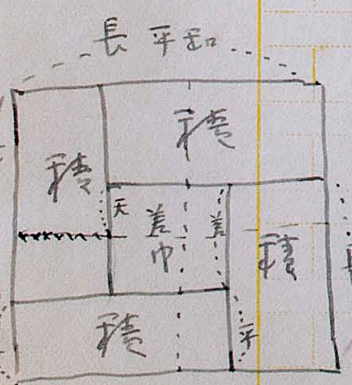 長平和
積
積
天
差巾
差
積
平
積